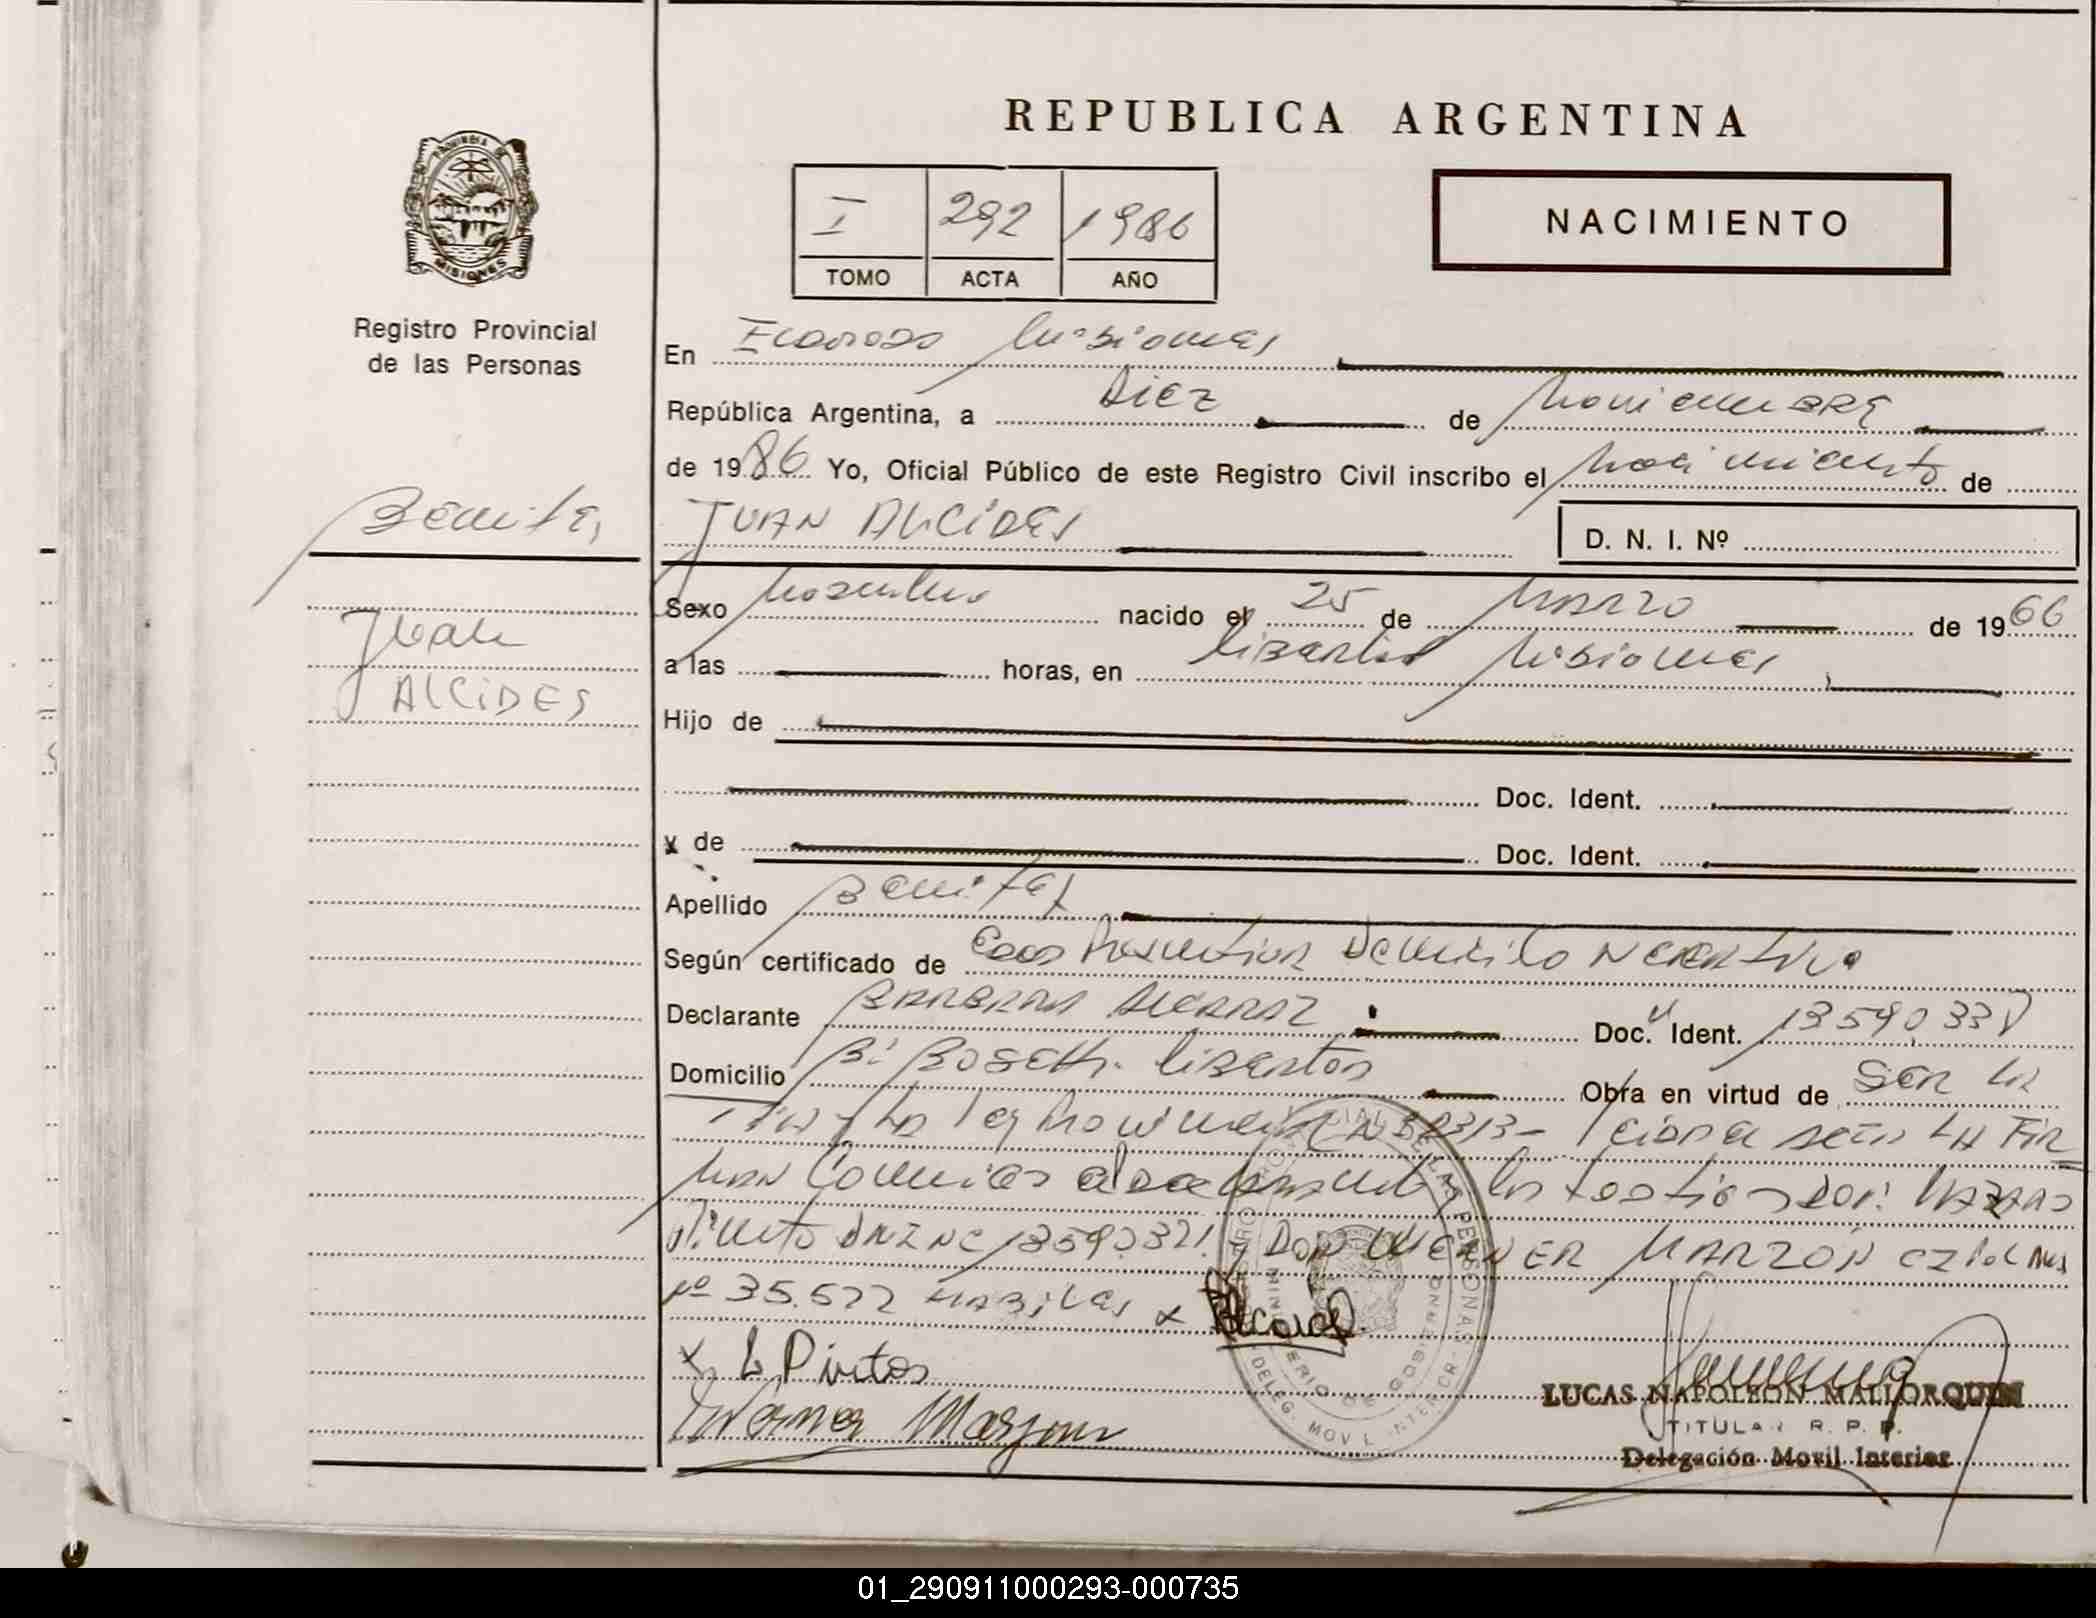 REPUBLICA ARGENTINA
PROVINCIA DE
MISIONES
Registro Provincial
de las Personas
I 292 1986
TOMO ACTA AÑO
NACIMIENTO
En Eldorado Misiones
República Argentina, a Diez de Noviembre
de 1986 Yo, Oficial Público de este Registro Civil inscribo el Nacimiento de
Benitez
JUAN ALCIDES
D. N. I. Nº
Sexo Masculino nacido el 25 de Marzo de 1966
Juan
ALCIDES
a las horas, en Libertad Misiones
Hijo de
Doc. Ident.
y de Doc. Ident.
Apellido Benitez
Según certificado de
Declarante BARBARA ALCARAZ Doc. Ident. 13590338
Domicilio Bº Libertad Obra en virtud de SER LA
Ley Provincial Nº 2313- LA FIR
MAN testigos Don
DNI Nº 13590321 y DON WERNER MARZON
Nº 35.522 HABILES x Alcaraz
x L Pintos
Werner Marzon
LUCAS NAPOLEON MALLORQUIN
TITULAR R. P. P.
Delegación Movil Interior
REGISTRO PROVINCIAL DE LAS PERSONAS
MINISTERIO DE GOBIERNO
DELEG. MOVIL INTER.
01_290911000293-000735